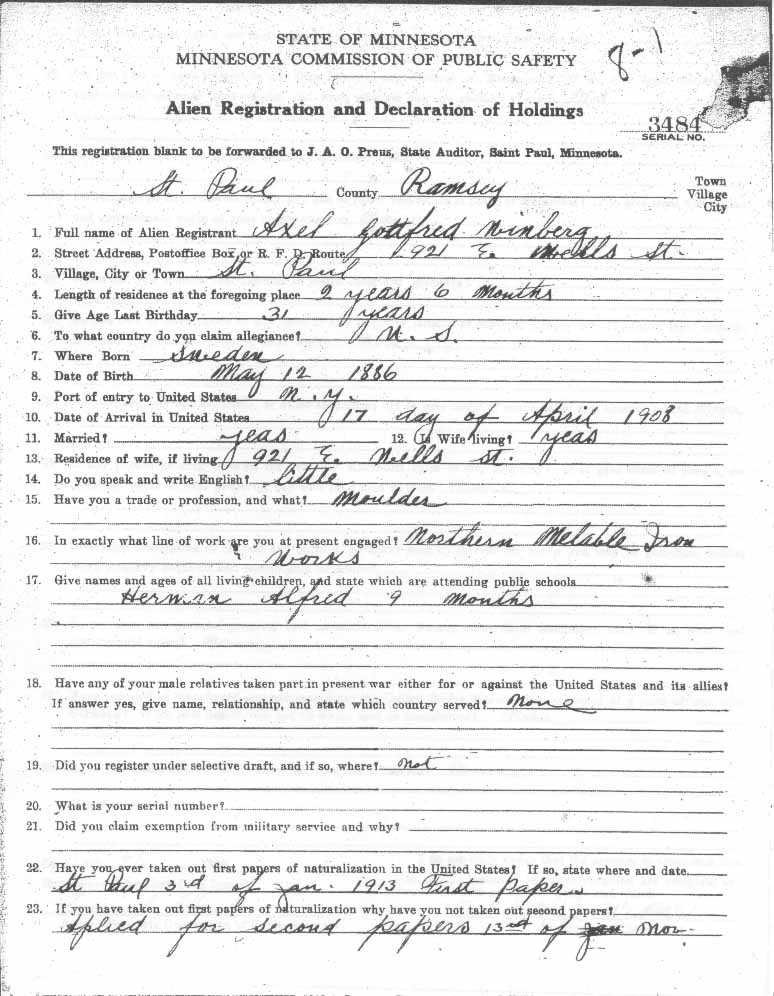 8-1
STATE OF MINNESOTA
MINNESOTA COMMISSION OF PUBLIC SAFETY
Alien Registration and Declaration of Holdings
3484
SERIAL NO.
This registration blank to be forwarded to J. A. O. Preus, State Auditor, Saint Paul, Minnesota.
St. Paul County Ramsey Town
Village
City
1. Full name of Alien Registrant Axel Gottfred Winberg
2. Street Address, Postoffice Box, or R. F. D. Route 921 E. Wells St.
3. Village, City or Town St. Paul
4. Length of residence at the foregoing place 2 years 6 Months
5. Give Age Last Birthday 31 years
6. To what country do you claim allegiance? U. S.
7. Where Born Sweden
8. Date of Birth May 12 1886
9. Port of entry to United States N. Y.
10. Date of Arrival in United States 17 day of April 1908
11. Married? yeas 12. Is Wife living? yeas
13. Residence of wife, if living 921 E. Wells St.
14. Do you speak and write English? little
15. Have you a trade or profession, and what? Moulder
16. In exactly what line of work are you at present engaged? Northern Melable Iron
Works
17. Give names and ages of all living children, and state which are attending public schools
Herman Alfred 9 months
18. Have any of your male relatives taken part in present war either for or against the United States and its allies?
If answer yes, give name, relationship, and state which country served? None
19. Did you register under selective draft, and if so, where? not
20. What is your serial number?
21. Did you claim exemption from military service and why?
22. Have you ever taken out first papers of naturalization in the United States? If so, state where and date
St Paul 3rd of Jan. 1913 First Papers
23. If you have taken out first papers of naturalization why have you not taken out second papers?
Aplied for second papers 13 of Nov.